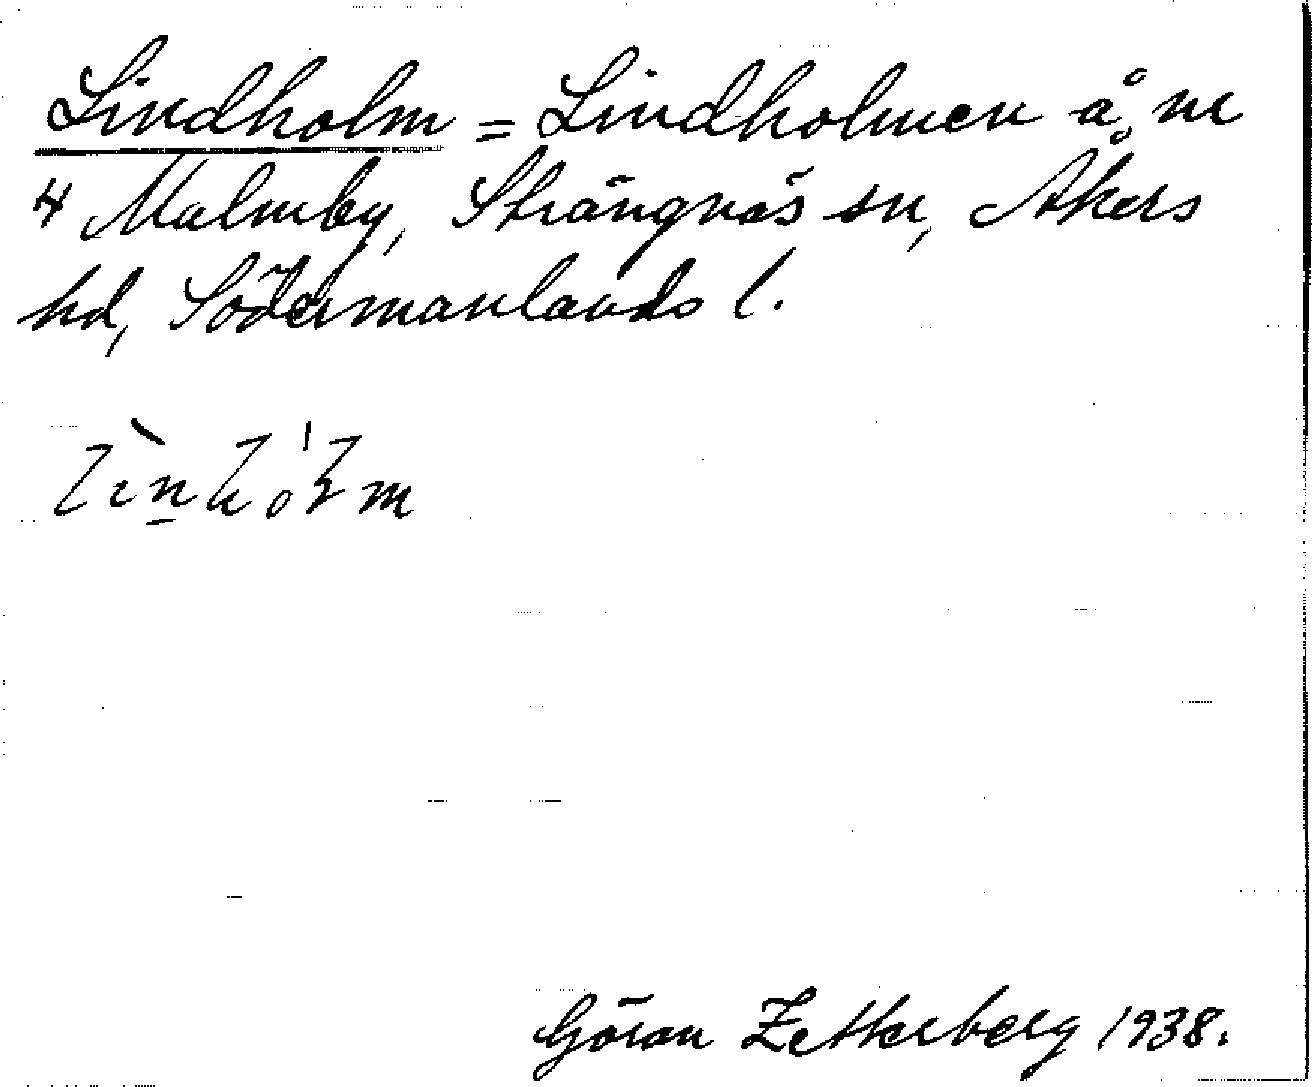 Lindholm = Lindholmen å nr
4 Malmby, Strängnäs sn, Åkers
hd, Södermanlands l.
Göran Zetterberg 1938.